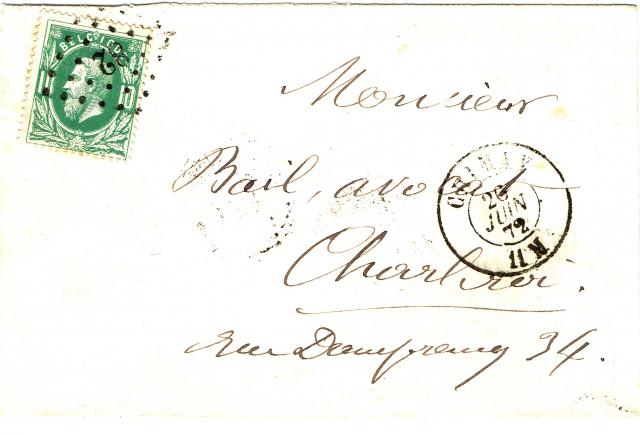 BELGIQUE
82
10
Monsieur
Bail, avocat
Charleroi.
Rue Dampremy 34.
CHIMAY
26
JUIN
72
11 M